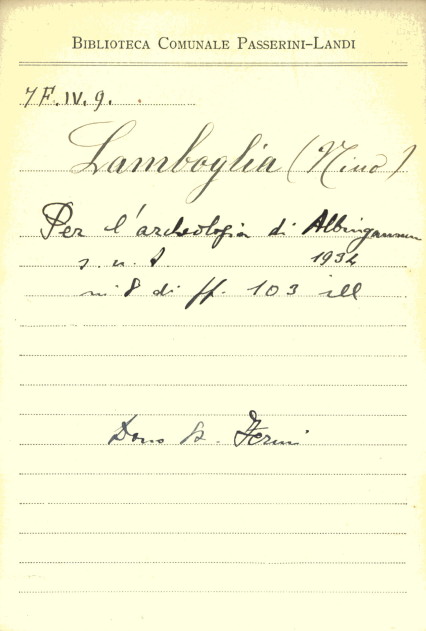 BIBLIOTECA COMUNALE PASSERINI-LANDI
7F.IV.9.
Lamboglia (Nino)
Per l'archeologia di Albingaunum
s. n. t 1934
in 8 di ff. 103 ill
Dono